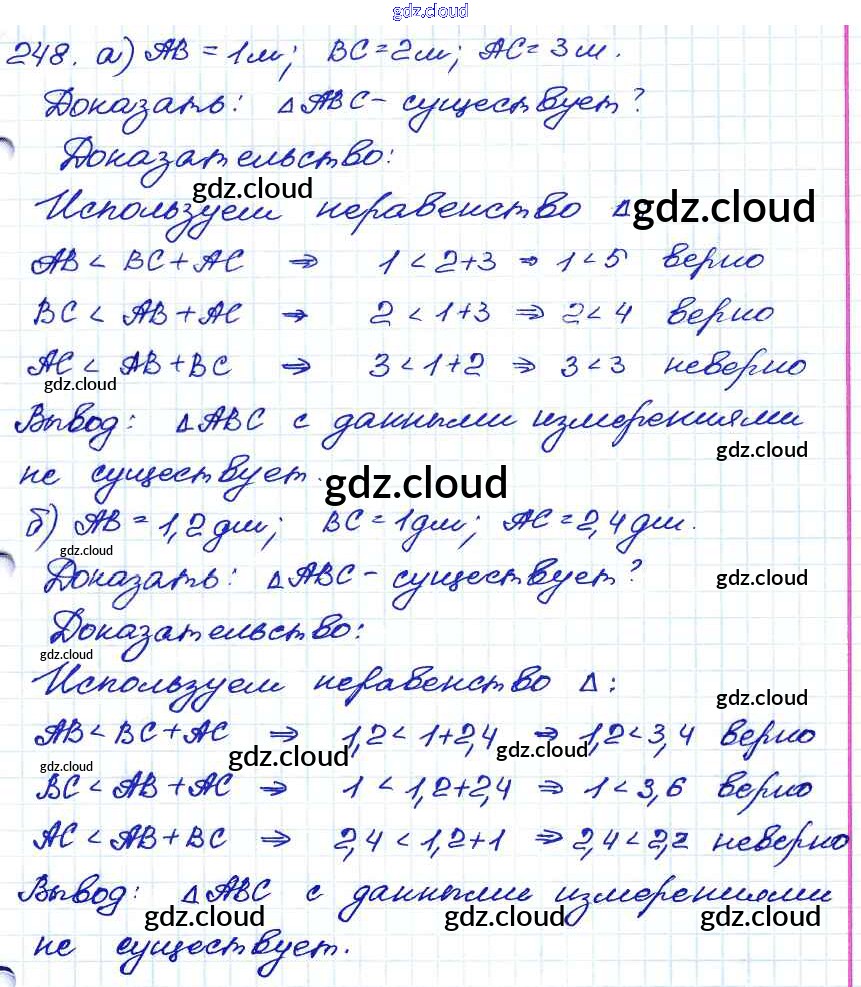 gdz.cloud
248. а) AB = 1м; BC = 2м; AC = 3м.
Доказать: △ABC - существует?
Доказательство:
gdz.cloud
Используем неравенство △ gdz.cloud
AB < BC + AC ⇒ 1 < 2+3 ⇒ 1 < 5 верно
BC < AB + AC ⇒ 2 < 1+3 ⇒ 2 < 4 верно
AC < AB + BC ⇒ 3 < 1+2 ⇒ 3 < 3 неверно
gdz.cloud
Вывод: △ABC с данными измерениями
gdz.cloud
не существует. gdz.cloud
б) AB = 1,2 дм; BC = 1 дм; AC = 2,4 дм.
gdz.cloud
Доказать: △ABC - существует? gdz.cloud
Доказательство:
gdz.cloud
Используем неравенство △:
gdz.cloud
AB < BC + AC ⇒ 1,2 < 1+2,4 ⇒ 1,2 < 3,4 верно
gdz.cloud gdz.cloud gdz.cloud
BC < AB + AC ⇒ 1 < 1,2+2,4 ⇒ 1 < 3,6 верно
AC < AB + BC ⇒ 2,4 < 1,2+1 ⇒ 2,4 < 2,2 неверно
Вывод: △ABC с данными измерениями
gdz.cloud gdz.cloud gdz.cloud
не существует.